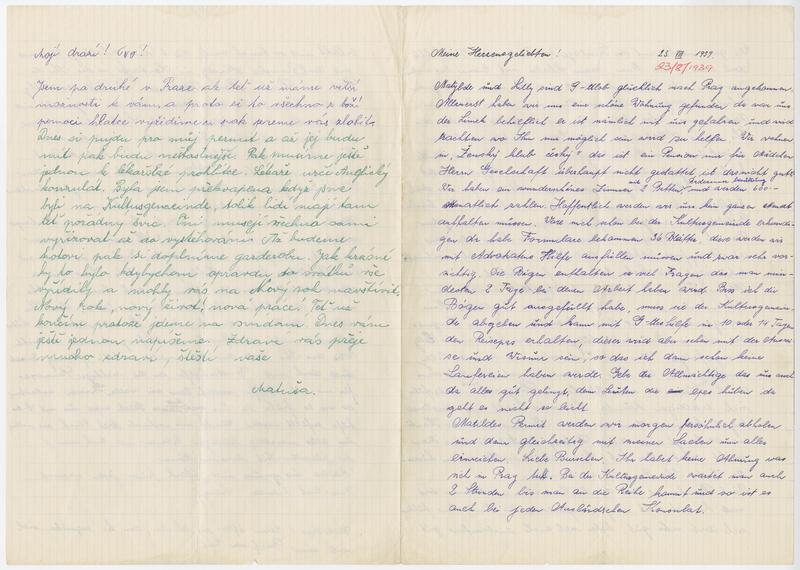 Moji drazí! Ivo!
Jsem po druhé v Praze ale teď už máme větší
možnosti k vám, a proto si to všechno z boží
pomoci hladce vyřídíme a pak zveme vás zlobit.
Dnes si pujdu pro můj permit a až jej budu
mít pak budu nejšťastnější. Pak musíme ještě
jednou k lékařské prohlídce. Lékaře určí Anglický
konsulat. Byla jsem překvapena když jsme
byli na Kultusgemeinde, tolik lidí mají tam
teď pořádný švic. Oni musejí všechno sami
vyřizovat až do vystěhování. Až budeme
hotovi pak si doplníme garderobu. Jak krásné
by to bylo kdybychom opravdu do svátků vše
vyřídily a mohly vás na Nový rok navštívit.
Nový rok, nový život! nová práce! Teď už
končím protože jdeme na snídani. Dnes vám
ještě jednou napíšeme. Zdraví vás přeje
mnoho zdraví, štěstí vaše
Matuša.
Meine Herzensgeliebten! 23 III 1939
23/8/1939
Matylde und Lilly sind G-ttlob glücklich nach Prag angekommen.
Allererst haben wir uns eine schöne Wohnung gefunden da war uns
der Limek behilflich er ist nämlich mit uns gefahren und wird
trachten wo Ihm nur möglich sein wird zu helfen. Wir wohnen
in „Ženský klub český" das ist ein Pension nur für Mädchen
Herren Gesellschaft überhaupt nicht gestattet, ist das nicht gut?
Wir haben ein wunderschönes Zimmer mit 2 Betten und werden 600-
monatlich zahlen. Hoffentlich werden wir uns kein ganzen Monat
aufhalten müssen. Wäre mich schon bei der Kultusgemeinde erkundi-
gen da habe Formulare bekommen 36 Blätter, diese werden wir
mit Advokaten Hilfe ausfüllen müssen und zwar sehr vor-
sichtig. Die Bögen enthalten so viel Fragen das man min-
destens 2 Tage bei denen Arbeit haben wird. Bis ich die
Bögen gut ausgefüllt habe, muss sie der Kultusgemein-
de abgeben und kann mit G-tteshilfe in 10 oder 14 Tagen
den Reisepass erhalten, dieses wird aber schon mit der Ausrei-
se und Visum sein, so das ich dann schon keine
Laufereien haben werde. Gebe der Allmächtige das uns auch
da alles gut gelingt, dem Leuten die epes haben da
geht es nicht so leicht.
Matildes Permit werden wir morgen persönlich abholen
und dann gleichzeitig mit meinen Sachen um alles
einreichen. Liebe Burschen. Ihr habet keine Ahnung was
sich in Prag tut. Ba der Kultusgemeinde wartet man auch
2 Stunden bis man an die Reihe kommt und so ist es
auch bei jeden Ausländischen Konsulat.